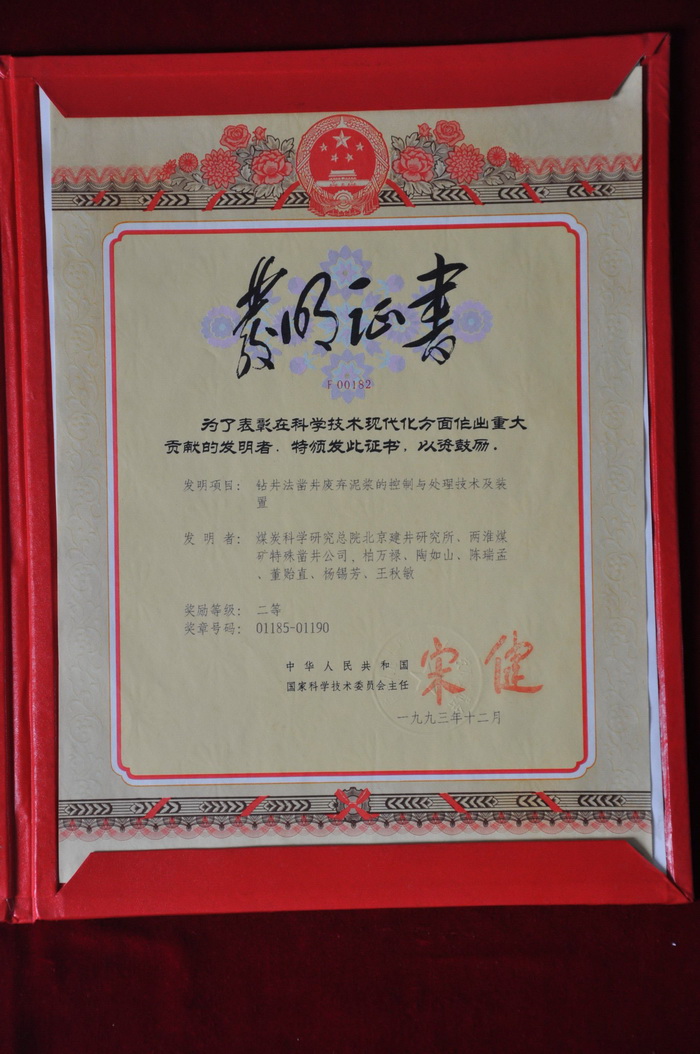 發明证書
F 00182
为了表彰在科学技术现代化方面作出重大
贡献的发明者，特颁发此证书，以资鼓励．
发明项目： 钻井法凿井废弃泥浆的控制与处理技术及装
置
发 明 者： 煤炭科学研究总院北京建井研究所、两淮煤
矿特殊凿井公司，柏万禄、陶如山、陈瑞孟
、董贻直、杨锡芳、王秋敏
奖励等级： 二等
奖章号码： 01185-01190
中华人民共和国
国家科学技术委员会主任
宋健
一九九三年十二月